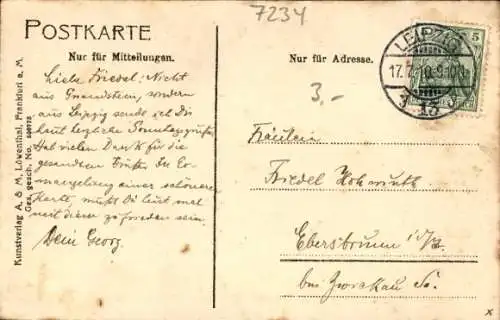 7234
POSTKARTE
Nur für Mitteilungen.
Nur für Adresse.
LEIPZIG
17.7.10. 9-10
5
3,-
Liebe Friedel. Nicht
aus Gnandstein, sondern
aus Leipzig sende ich Dir
heut herzliche Sonntagsgrüße.
Hab vielen Dank für die
gesandten Grüße. In Er-
mangelung einer schönern
Karte, mußt Du heut mal
mit dieser zufrieden sein.
Dein Georg.
Fräulein
Friedel
Ebersbrunn i/S.
bei Zwickau Sa.
Kunstverlag A. & M. Löwenthal, Frankfurt a. M.
Ges. gesch. No.
x